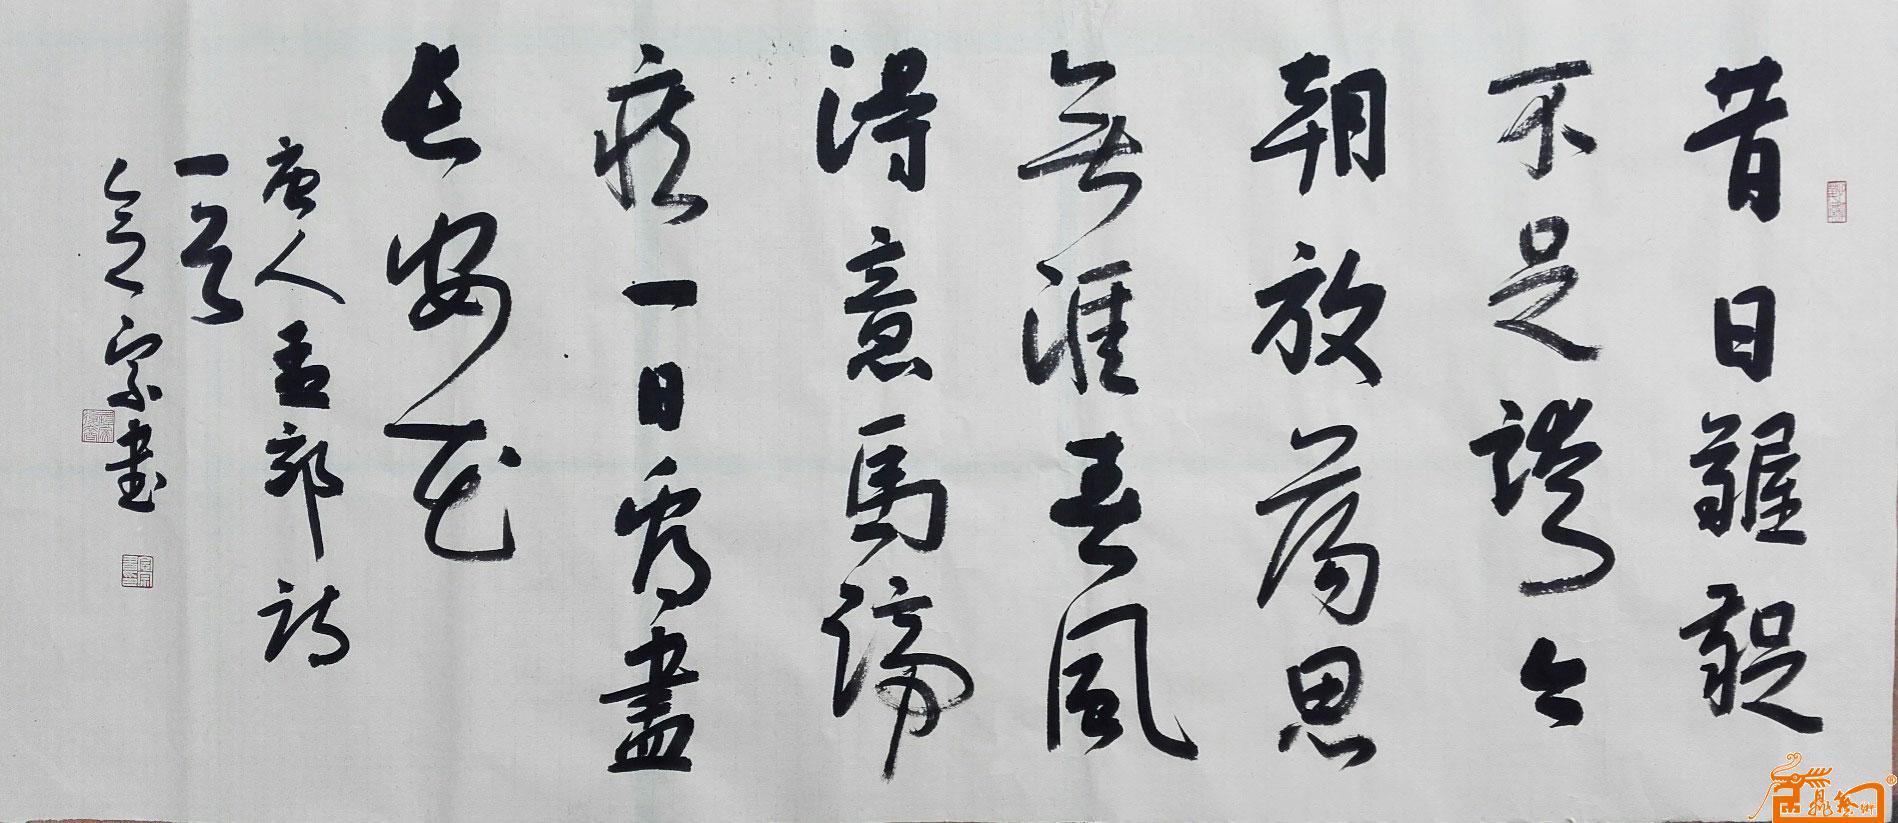 昔日齷齪
不足誇今
朝放蕩思
無涯春風
得意馬蹄
疾一日看盡
長安花
唐人孟郊詩
一首
宗書